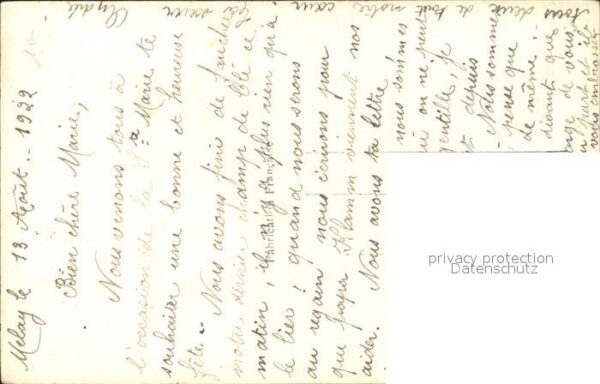 Melay le 13 Août. 1922
Bien chère Marie,
Nous venons tous à
l'occasion de la Ste Marie te
souhaiter une bonne et heureuse
fête. Nous avons fini de faucher
notre dernier champ de blé ce
matin, il n'y a plus rien qu'à
le lier ; quand nous serons
au regain nous écrirons pour
que papa viennent nous
aider. Nous avons ta lettre
nous sommes
on ne peut
gentille, je
et depuis
Nous sommes
pense que
de même
disant que
ange de vous
part et
vous embrasser
tous deux de tout notre cœur
sœur
Fabrication Française
privacy protection
Datenschutz